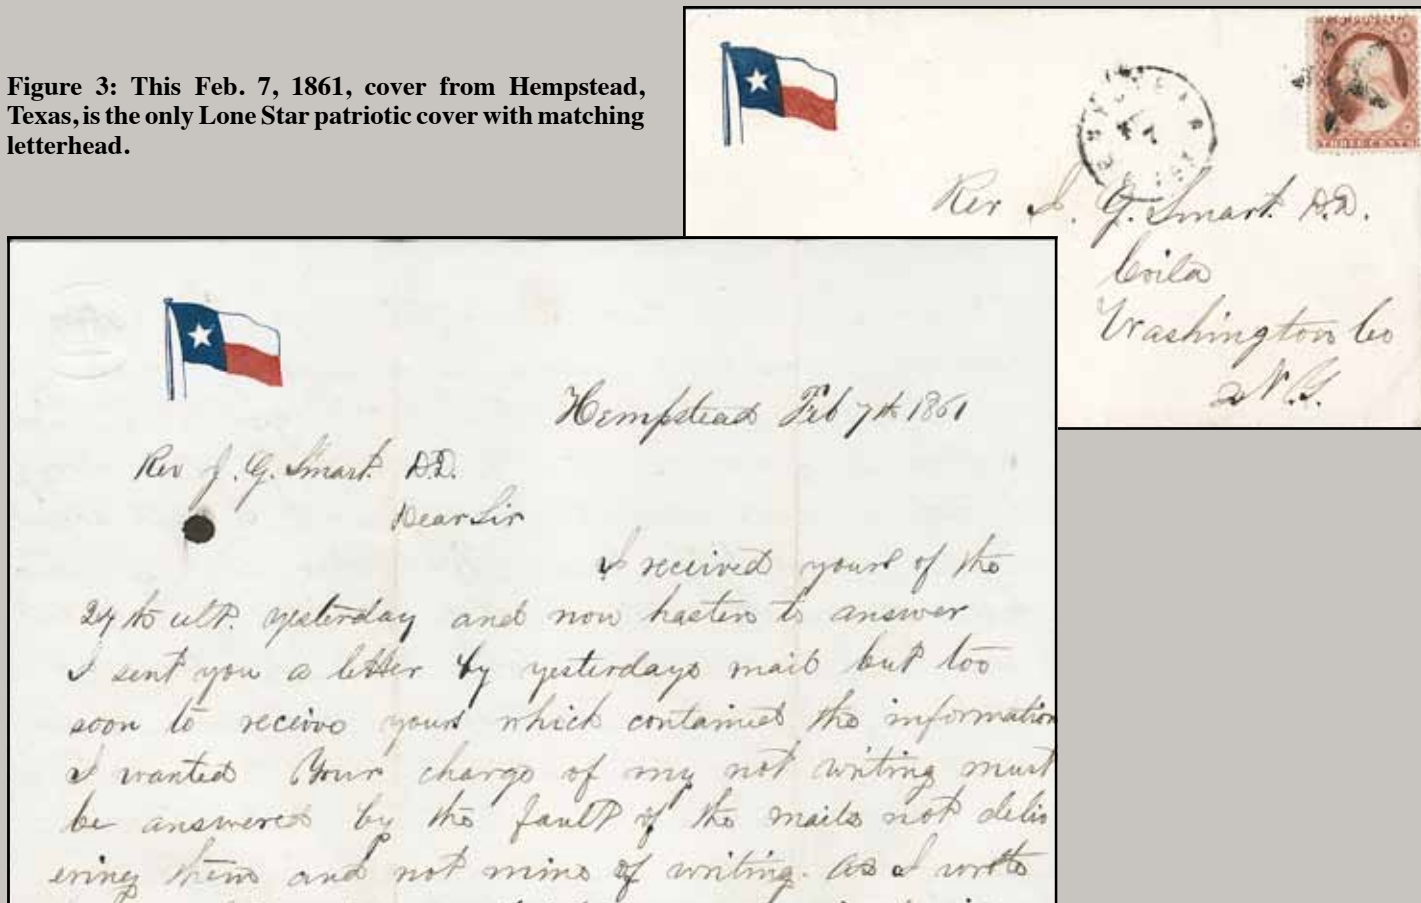 Figure 3: This Feb. 7, 1861, cover from Hempstead,
Texas, is the only Lone Star patriotic cover with matching
letterhead.
THREE CENTS
Rev J. G. Smart D.D.
Coila
Washington Co
N.Y.
Hempstead Feb 7th 1861
Rev J. G. Smart D.D.
Dear Sir
I received yours of the
ult. yesterday and now hasten to answer
I sent you a letter by yesterdays mail but too
soon to receive yours which contained the information
I wanted Your charge of my not writing must
be answered by the fault of the mails not deliv
ering them and not mine of writing. As I wrote